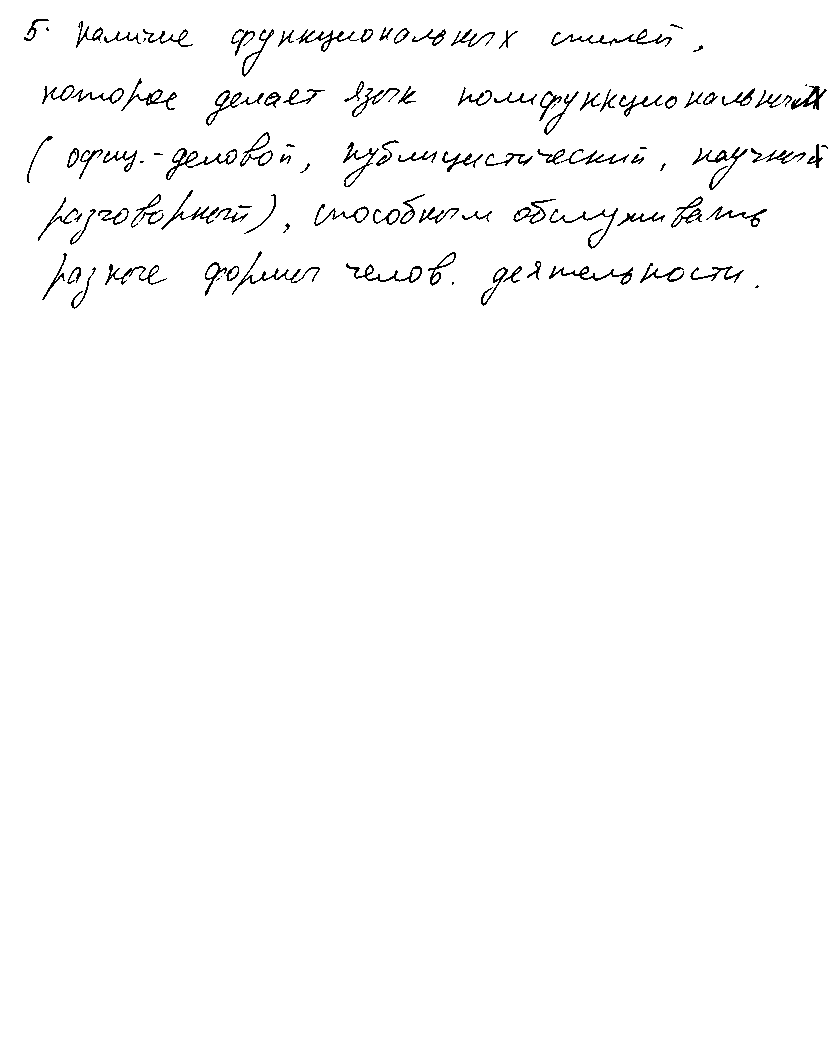 5. наличие функциональных стилей,
которое делает язык полифункциональным
( офиц.-деловой, публицистический, научный
разговорный), способным обслуживать
разные формы челов. деятельности.